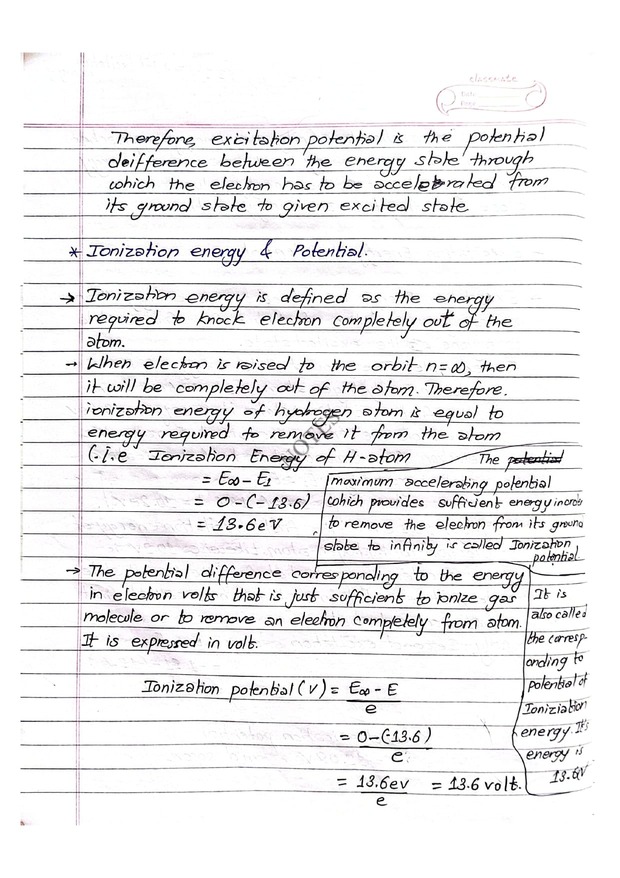 classmate
Date
Page
Therefore, excitation potential is the potential
deifference between the energy state through
which the electron has to be accelerated from
its ground state to given excited state
* Ionization energy & Potential.
→ Ionization energy is defined as the energy
required to knock electron completely out of the
atom.
→ When electron is raised to the orbit n=∞, then
it will be completely out of the atom. Therefore.
ionization energy of hydrogen atom is equal to
energy required to remove it from the atom
(.i.e Ionization Energy of H-atom
= E∞ - E1
= 0 - (-13.6)
= 13.6 eV
The potential
maximum accelerating potential
which provides sufficient energy in order
to remove the electron from its ground
state to infinity is called Ionization
potential
→ The potential difference corresponding to the energy
in electron volts that is just sufficient to ionize gas
molecule or to remove an electron completely from atom.
It is expressed in volt.
It is
also called
the corresp-
onding to
potential of
Ioniziation
energy. It's
energy is
13.6V
Ionization potential (V) = E∞ - E
e
= 0 - (-13.6)
e
= 13.6ev = 13.6 volt.
e
NOTES